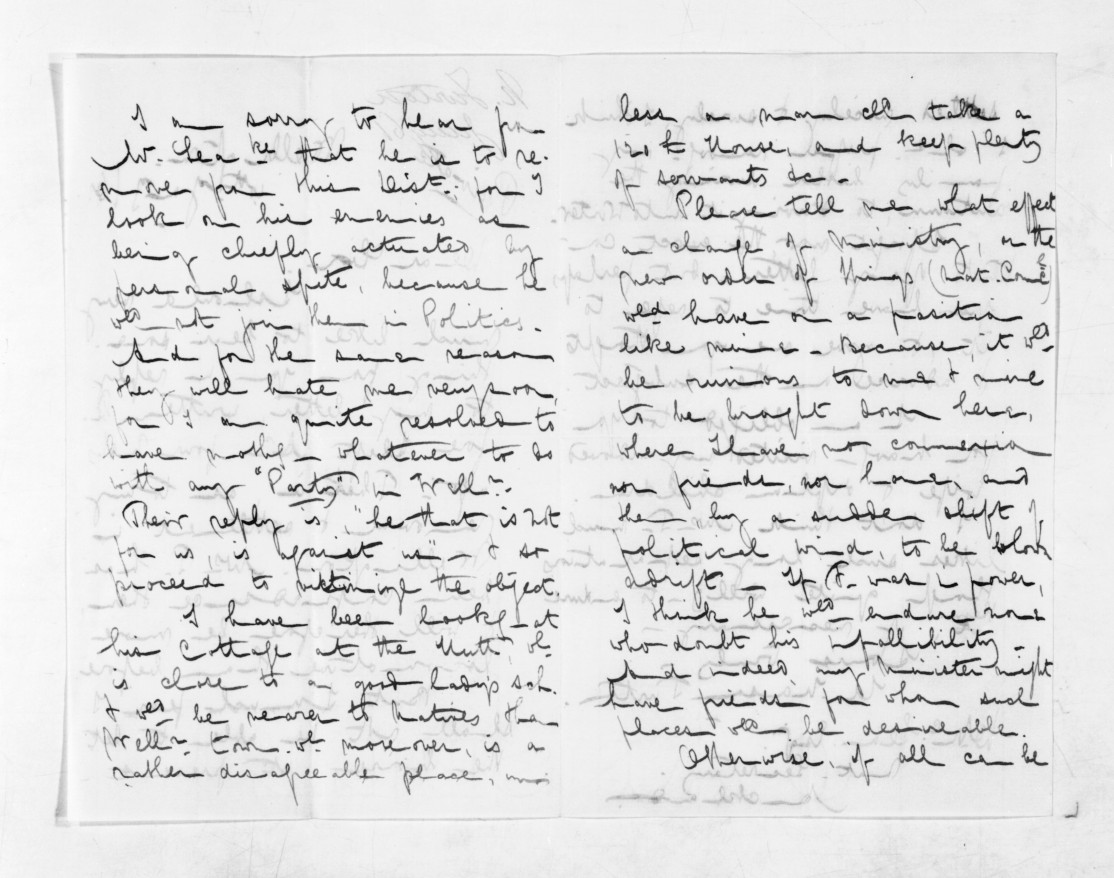 I am sorry to hear from
Mr. Lea ke that he is to re-
move from this Dist.: for I
look on his enemies as
being chiefly actuated by
personal spite, because he
wd. not join them in Politics.
And for the same reason
they will hate me very soon,
for I am quite resolved to
have nothg. whatever to do
with any "Party" in Welln.
Their reply is, "he that is not
for us, is against us" - & so
proceed to victimize the object.
I have been lookg. at
his Cottage at the Hutt, wh.
is close to a good lady's sch.
& wd. be nearer to Natives than
Welln. town. wh. moreover, is a
rather disagreeable place, un-
less a man can take a
120£ House, and keep plenty
of servants &c.
Please tell me what effect
a change of Ministry, or the
new order of things (Nat. Comn)
wd have on a position
like mine - Because, it wd.
be ruinous to me & mine
to be brought down here,
where I have no connexion
nor friends, nor home, and
then by a sudden shift of
political wind, to be blown
adrift - If F. was in power,
I think he wd. endure none
who doubt his infallibility -
And indeed, any Minister might
have friends for whom such
places wd. be desireable.
Otherwise, if all can be